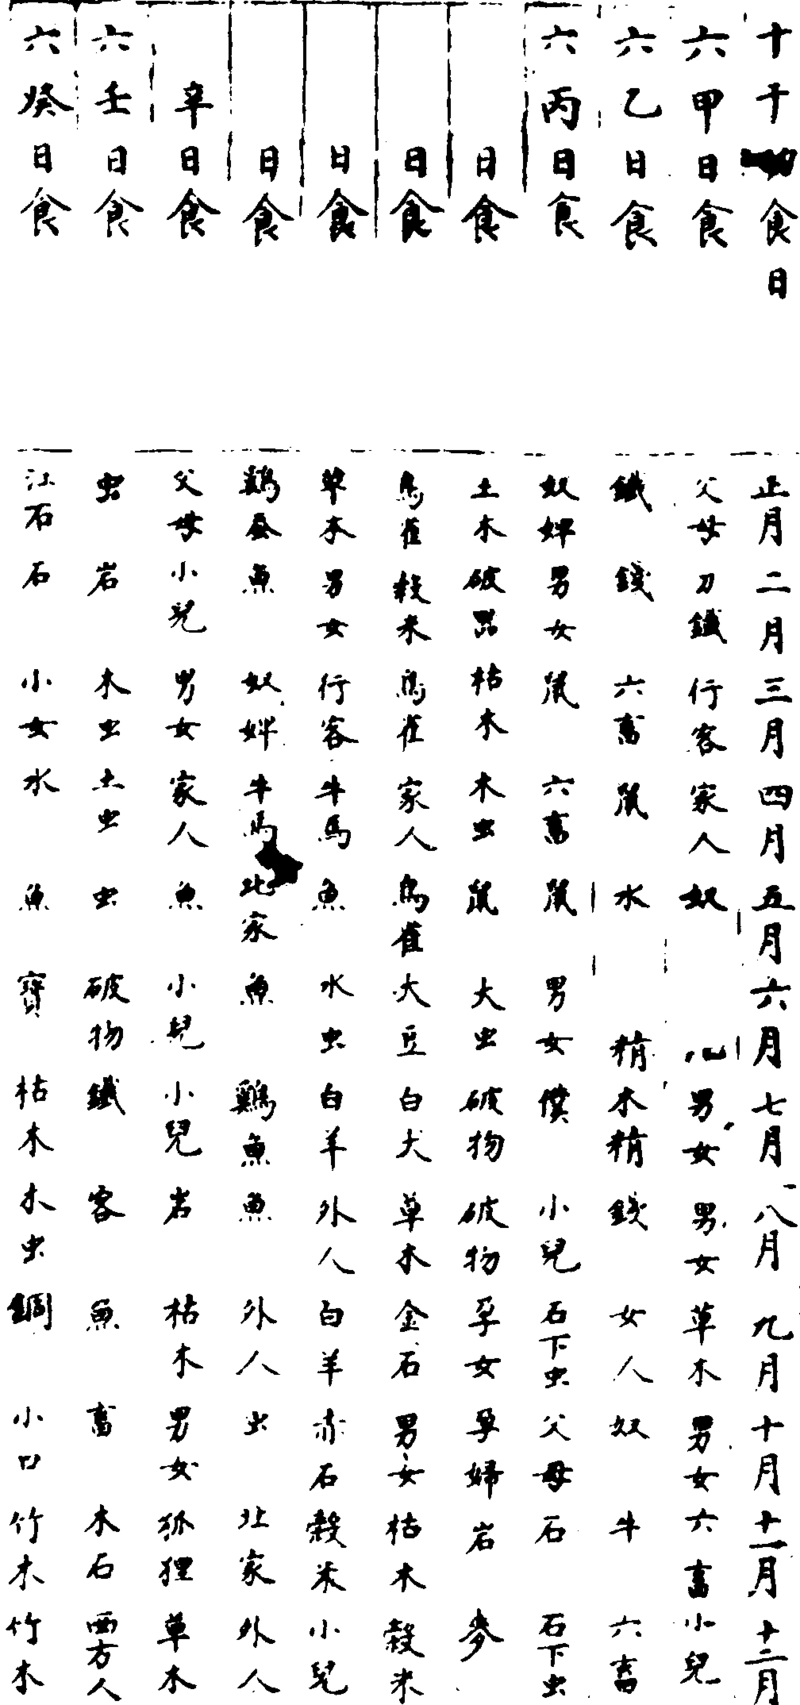 十干食日 正月 二月 三月 四月 五月 六月 七月 八月 九月 十月 十一月 十二月
六甲日食 父母 刀鐵 行客 家人 奴 男女 男女 草木 男女 六畜 小兒
六乙日食 鐵 錢 六畜 鼠 水 精 木精 錢 女人 奴 牛 六畜
六丙日食 奴婢 男女 鼠 六畜 鼠 男女 僕 小兒 石下虫 父母 石 石下虫
日食 土木 破器 枯木 木虫 鼠 大虫 破物 破物 孕女 孕婦 岩 麥
日食 烏雀 穀米 烏雀 家人 烏雀 大豆 白犬 草木 金石 男女 枯木 穀米
日食 草木 男女 行客 牛馬 魚 水虫 白羊 外人 白羊 赤石 穀米 小兒
日食 鷄蚕 魚 奴婢 牛馬 北家 魚 鷄魚 魚 外人 虫 北家 外人
辛日食 父母 小兒 男女 家人 魚 小兒 小兒 岩 枯木 男女 狐狸 草木
六壬日食 虫 岩 木虫 土虫 虫 破物 鐵 客 魚 畜 木石 西方人
六癸日食 江石 石 小女 水 魚 寶 枯木 木虫 銅 小口 竹木 竹木